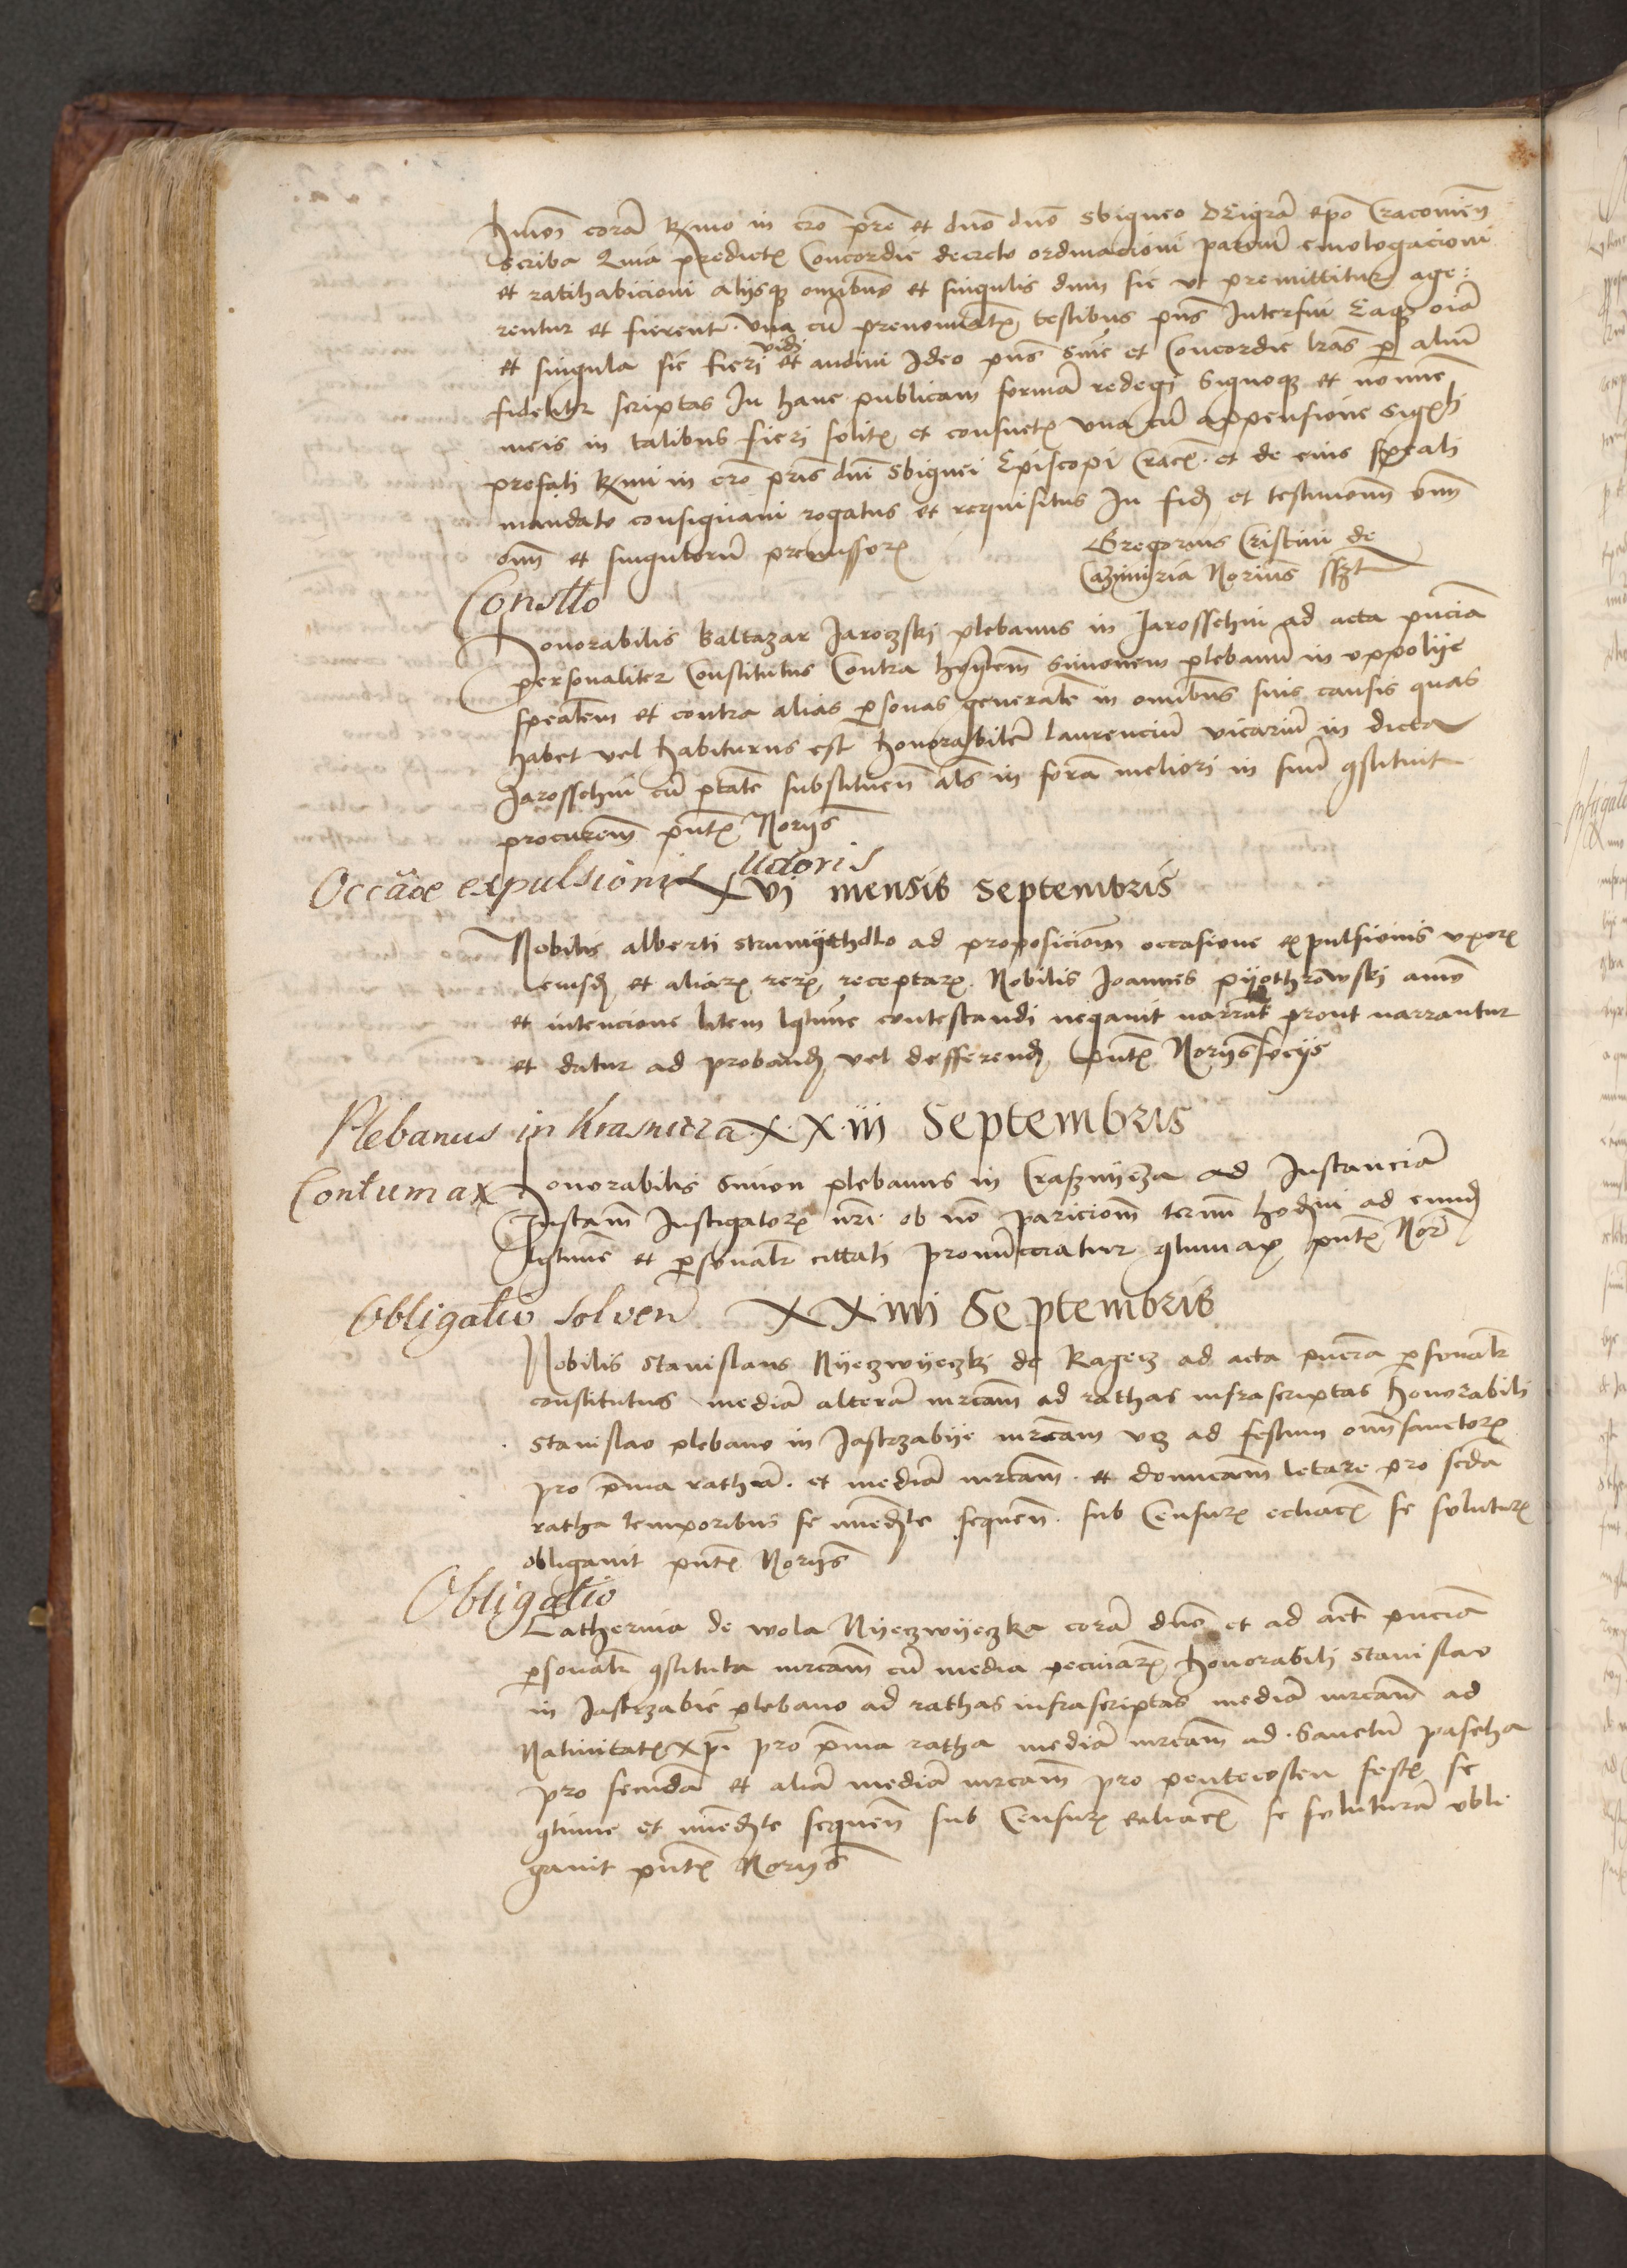 coram Rmo in cro pre et dno dno Sbigneo Dei gra epo Cracovien
scriba Quia predictis Concordie decreto ordinacioni parcium emologacioni
et ratihabicioni alijsq omnibus et singulis dum sic ut premittitur age:
rentur et fierent. Una cu prenominatis testibus pns Interfui Eaq oia
et singula sic fieri vidi et audivi Ideo pns sive et Concordie lras p aliu
fideliter scriptas In hanc publicam forma redegi Signoq et nomine
meis in talibus fieri solitis et consuetis una cu appensione sigilli
prefati Rmi in cro pris dni Sbignei Episcopi Crac. et de eius speciali
mandato consignavi rogatus et requisitus In fidem et testimonium omn
omn et singulorum premissorum
Gregorius Cristini de
Cazimiria Norius sszt
Constto
Honorabilis Baltazar Jaroczski plebanus in Jarosschin ad acta pncia
personaliter Constitutus Contra honorabilem Simonem plebanu in Oppolije
specialem et contra alias psonas generalem in omnibus suis causis quas
habet vel habiturus est honorabilem Laurenciu vicariu in dicta
Jarosschin cu ptate substituen als in forma meliori in suu cstituit
procurem pntis Norijs
Occaoe expulsionis uxoris
XVI mensis Septembris
Nobilis Alberti ad proposicionem occasione expulsionis uxoris
eiusdem et aliarum rerum receptarum Nobilis Joannes Pijothrowski animo
et intencione litem lgtime contestandi negavit narrata prout narrantur
et datur ad probandum vel defferendum pntis Norijs socijs
Plebanus in Krasnicza XXiii Septembris
Contumax
Honorabilis Simon plebanus in Crasznijcza ad Instancia
Instam Instigatoris nri ob no paricionem termini hodierni ad eund
lgtime et psonalr cittati pronuncciatur cotumax pntis Nor
Obligatio solven XXiiii Septembris
Nobilis Stanislaus Nijeczwijeczki de Ragecz ad acta pncia psonalr
constitutus media altera mrcam ad rathas infrascriptas honorabili
Stanislao plebano in Jastrzabije mrcam vcz ad festum omn sanctorum
pro pma ratha. et media mrcam et dominicam letare pro scda
ratha temporibus se immediate sequen. sub Censuris ecliacis se soluturum
obligavit pntis Norijs
Obligatio
Catherina de Wola Nijeczwijeczka cora dno et ad act pncia
psonalr cstituta mrcam cu media pecuniarum honorabili Stanislao
in Jastrzabie plebano ad rathas infrascriptas media mrcam ad
Nativitatis Xpi pro pma ratha media mrcam ad Sanctu pascha
pro secunda et alia media mrcam pro pentecosten festis se
gtinue et immediate sequen sub Censuris ecliacis se soluturam obli
gavit pntis Norijs